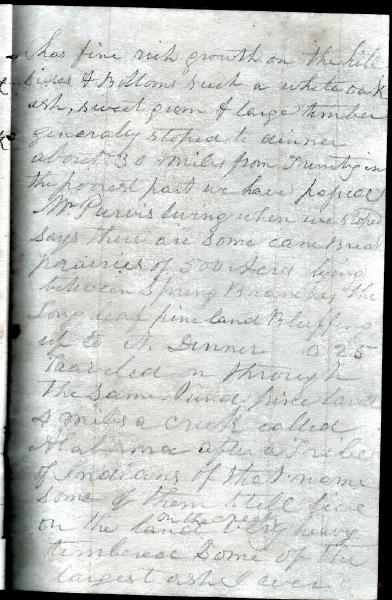 has fine rich growth on the hill
sides & Bottoms such a white oak
ash, sweet gum & large timber
generally stoped to dinner
about 30 miles from Trinity in
the poorest part we have passed
Mr Purvis living where we stoped
says there are some cane Break
prairies of 500 Acres lying
between Spring Branches the
Long leaf pine land Bluffing
up to it. Dinner 0 25
Traveled on through
the same pine land
4 miles a creek called
Alabama after a Tribe
of Indians of that name
Some of them still live
on the land on the creek very heavy
timbered Some of the
largest ash I ever